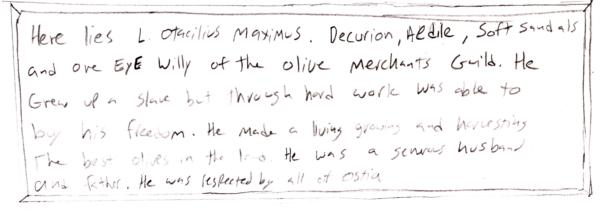 Here lies L. Otacilius Maximus. Decurion, Aedile, Soft Sandals
and one EyE Willy of the olive Merchants Guild. He
Grew up a slave but through hard work was able to
buy his freedom. He made a living growing and harvesting
The best olives in the He was a generous husband
and father. He was respected by all of Ostia